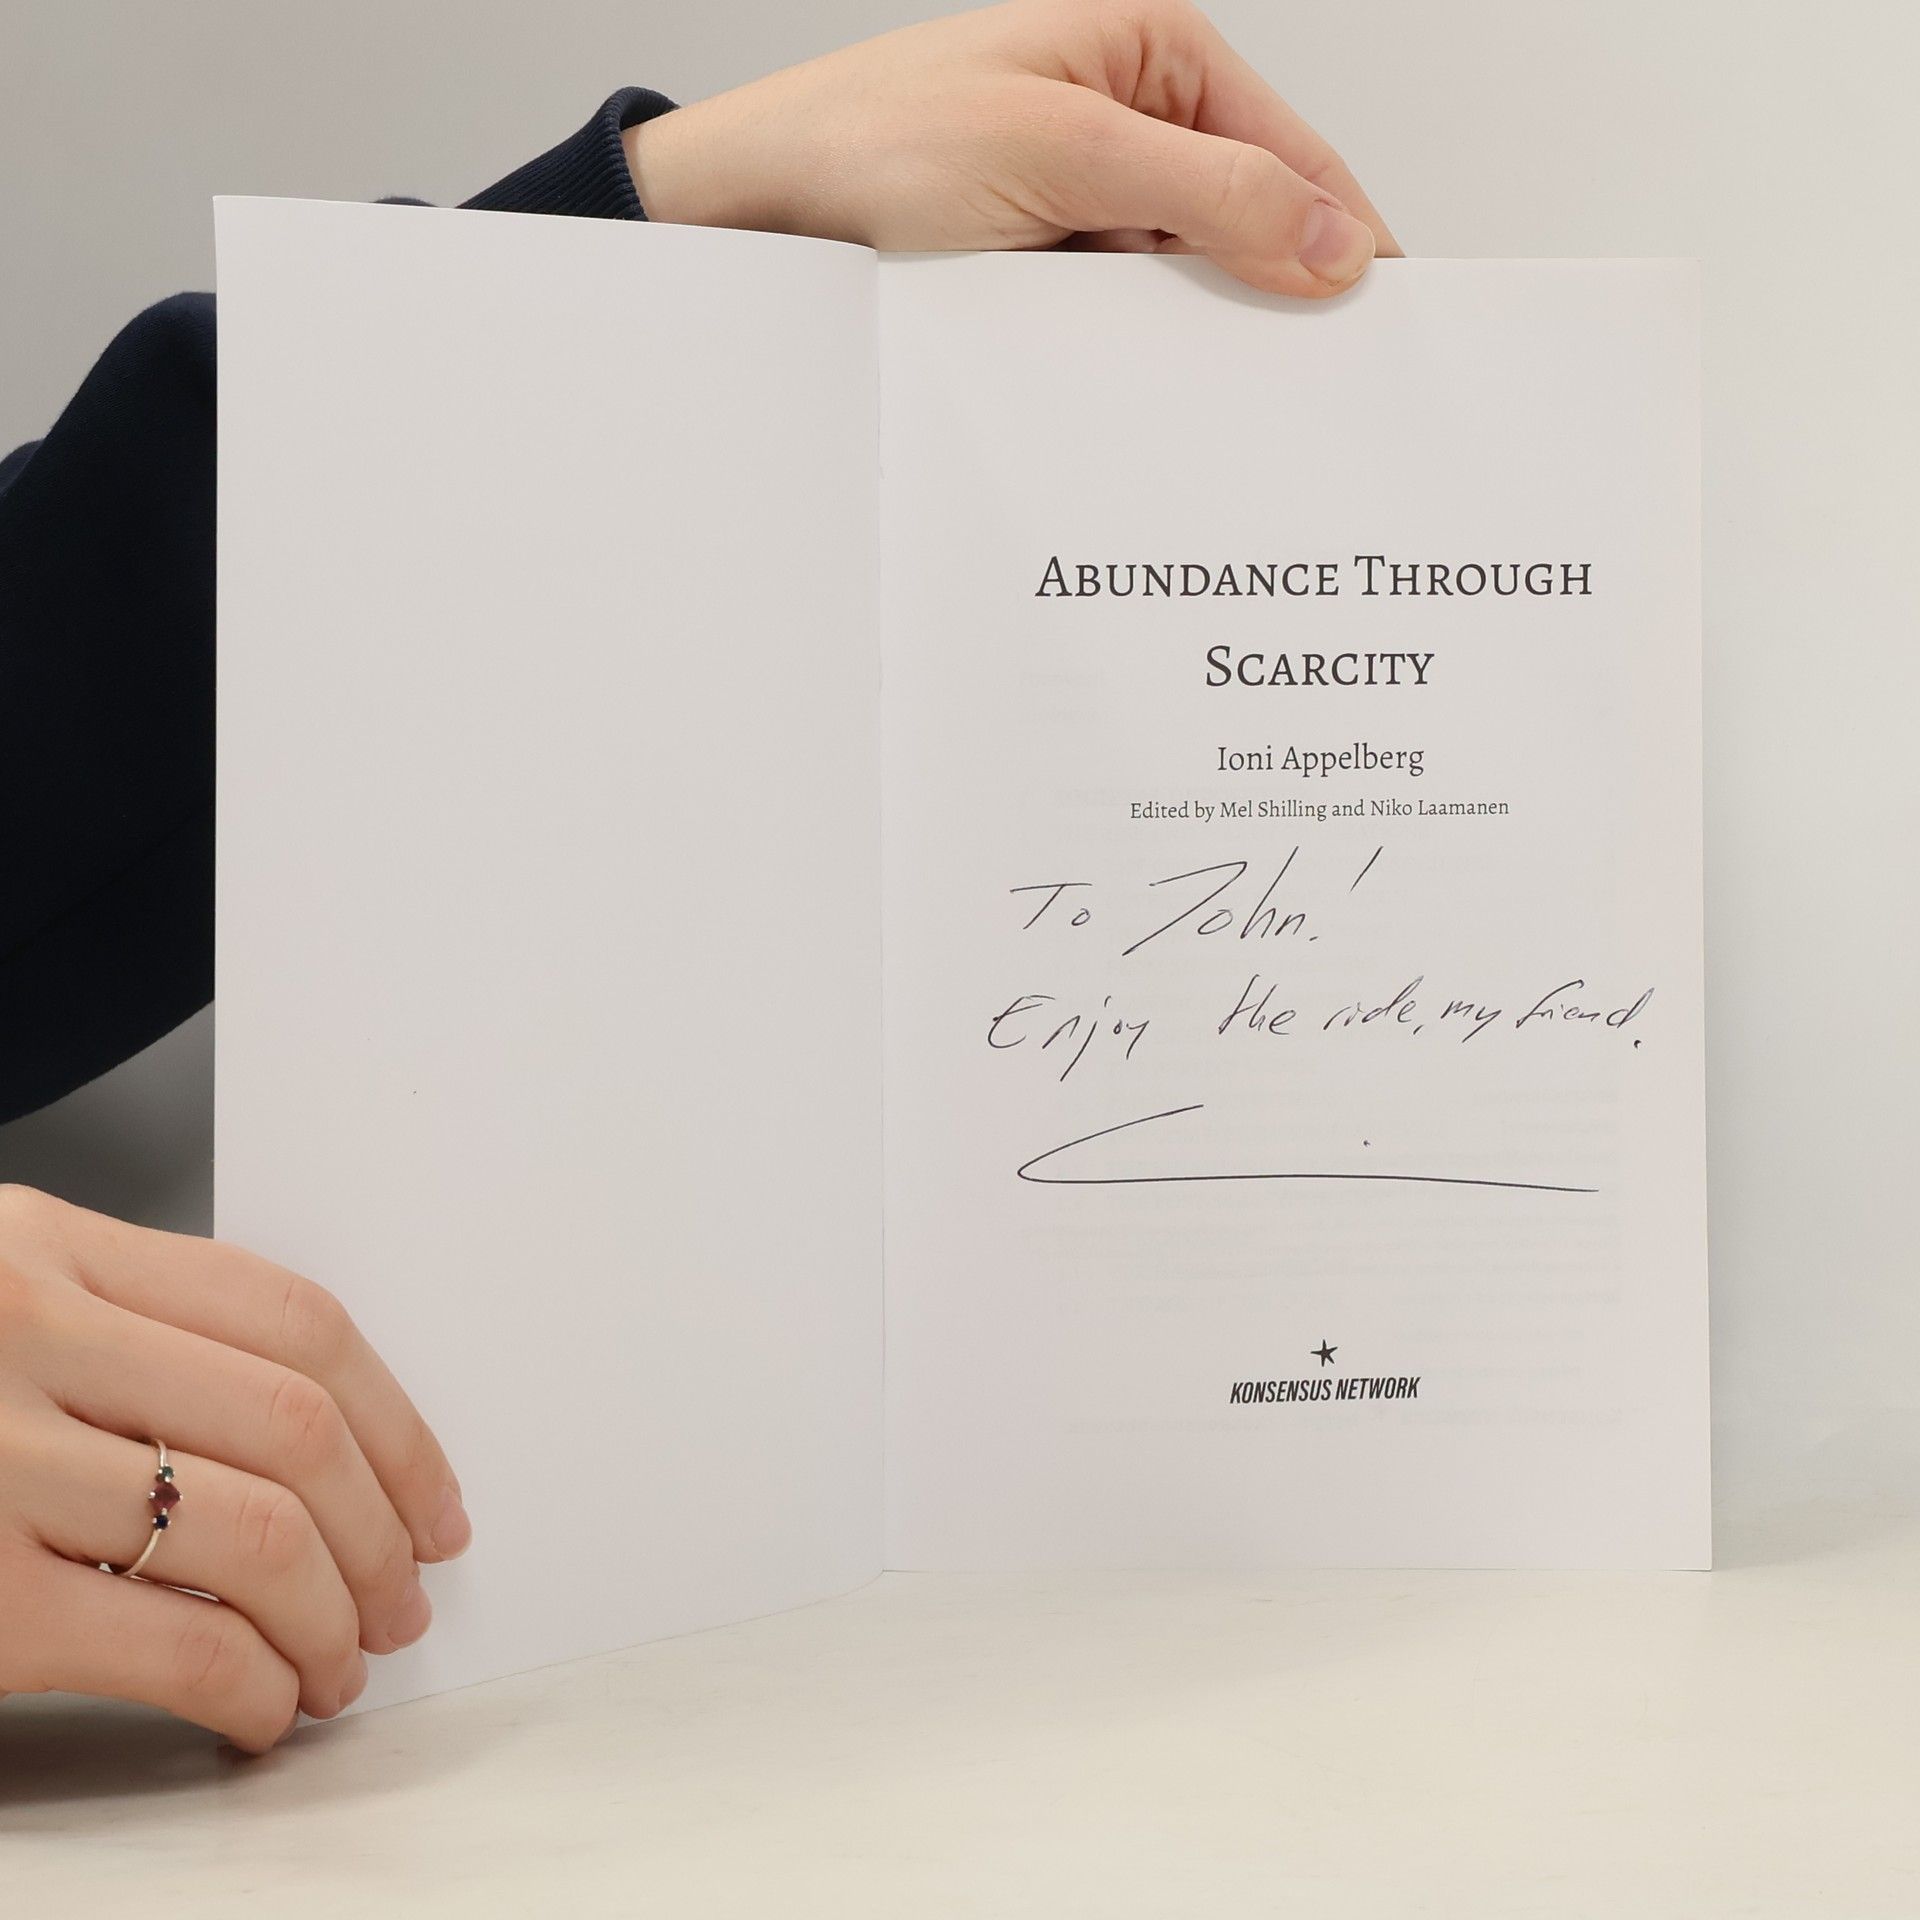 ABUNDANCE THROUGH
SCARCITY
Ioni Appelberg
Edited by Mel Shilling and Niko Laamanen
To John!
Enjoy the ride, my friend.
KONSENSUS NETWORK